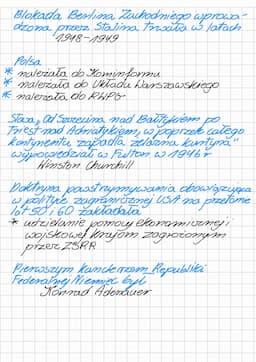 Blokada Berlina Zachodniego wprowa-
dzona przez Stalina trwała w latach
1948-1949
Polska
* należała do Kominformu
* należała do Układu Warszawskiego
* należała do RWPG
Słowa „Od Szczecina nad Bałtykiem po
Triest nad Adriatykiem, w poprzek całego
kontynentu zapadła żelazna kurtyna"
wypowiedział w Fulton w 1946 r
Winston Churchill
Doktryna powstrzymywania obowiązująca
w polityce zagranicznej USA na przełomie
lat 50 i 60 zakładała
* udzielanie pomocy ekonomicznej i
wojskowej krajom zagrożonym
przez ZSRR
Pierwszym kanclerzem Republiki
Federalnej Niemiec był
Konrad Adenauer